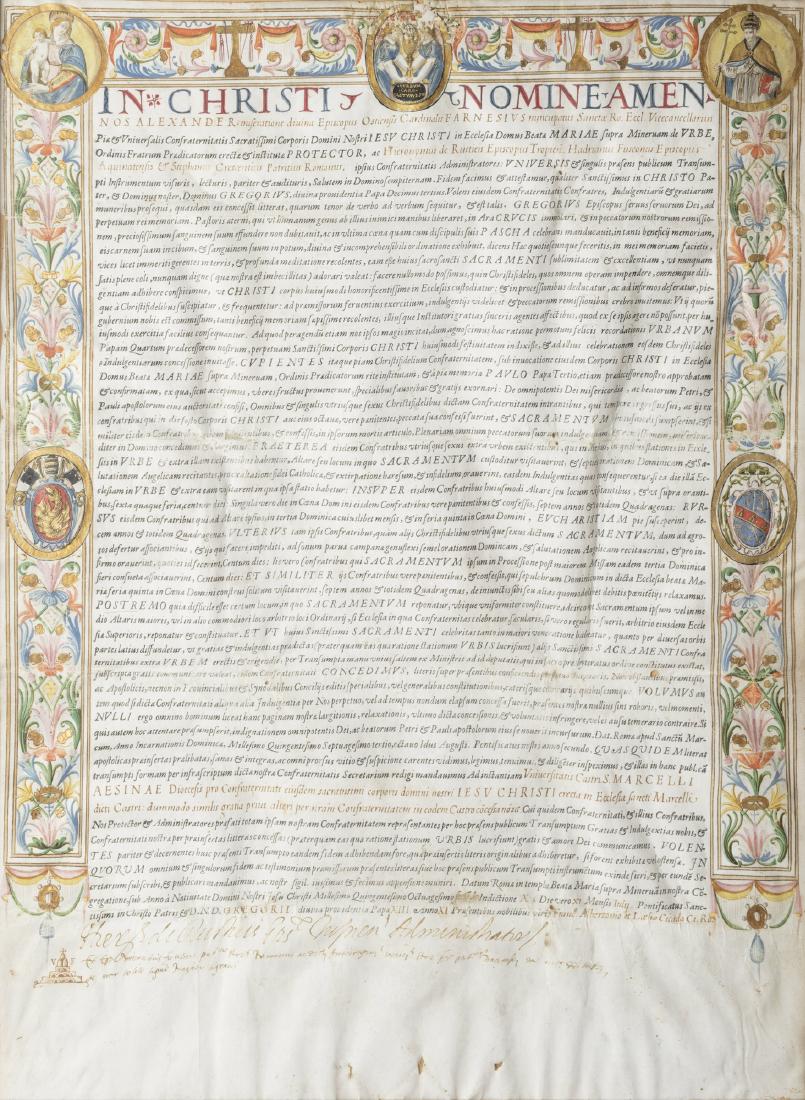 IN CHRISTI NOMINE AMEN
NOS ALEXANDER miseratione divina Episcopus Ostiensis Cardinalis FARNESIUS nuncupatus Sanctæ Ro. Eccl. Vicecancellarius
Piæ & Vniversalis Confraternitatis Sacratissimi Corporis Domini Nostri IESV CHRISTI in Ecclesia Domus Beatæ MARIAE supra Mineruam de VRBE,
Ordinis Fratrum Prædicatorum erectæ & institutæ PROTECTOR, ac Hieronymus de Rusticis Episcopus Tropien. Hadrianus Fusconus Episcopus
Aquinatensis & Stephanus Crescentius Patritius Romanus, ipsius Confraternitatis Administratores: VNIVERSIS & singulis præsens publicum Transum-
pti Instrumentum visuris, lecturis, pariter & audituris, Salutem in Domino sempiternam. Fidem facimus & attestamur, qualiter Sanctissimus in CHRISTO Pa-
ter, & Dominus noster, Dominus GREGORIVS, diuina prouidentia Papa Decimus tertius, Volens eiusdem Confraternitatis Confratres, Indulgentiarum & gratiarum
muneribus prosequi, quasdam eis concessit litteras, quarum tenor de verbo ad verbum sequitur, & est talis. GREGORIVS Episcopus seruus seruorum Dei, ad
perpetuam rei memoriam. Pastoris æterni, qui vt humanum genus ab illius inimici manibus liberaret, in Ara CRVCIS immolari, & in peccatorum nostrorum remissio-
nem, preciosissimum sanguinem suum effundere non dubitauit, ac in vltima cœna quam cum discipulis suis PASCHA celebrans manducauit, in tanti beneficij memoriam,
eis carnem suam in cibum, & sanguinem suum in potum, diuina & incomprehensibili ordinatione exhibuit, dicens Hæc quotiescunque feceritis, in mei memoriam facietis,
vices licet immeriti gerentes in terris, & profunda meditatione recolentes, eam esse huius sacrosancti SACRAMENTI sublimitatem & excellentiam, vt nunquam
satis plene coli, nunquam digne (quæ nostra est imbecillitas) adorari valeat: facere nullo modo possumus, quin Christifideles, quos omnem operam impendere, omnemque dili-
gentiam adhibere conspicimus, vt CHRISTI corpus huiusmodi honorificentissime in Ecclesijs custodiatur; & in processionibus deducatur, ac ad infirmos deferatur, pie-
que à Christifidelibus suscipiatur, & frequentetur: ad præmissorum feruentius exercitium, indulgentijs videlicet & peccatorum remissionibus crebris inuitemus: Vt ij quorum
gubernium nobis est commissum, tanti beneficij memoriam sæpissime recolentes, illiusque Institutori gratias sinceris agentes affectibus, quod ex se ipsis agere non possunt, per hu-
iusmodi exercitia facilius consequantur. Ad quod peragendum etiam nos ipsos magis incitat, dum agnoscimus hac ratione permotum felicis recordationis VRBANVM
Papam Quartum prædecessorem nostrum, perpetuam Sanctissimi Corporis CHRISTI huiusmodi festiuitatem indixisse, & ad illius celebrationem eosdem Christifideles
Indulgentiarum concessione inuitasse. CVPIENTES itaque piam Christifidelium Confraternitatem, sub inuocatione eiusdem Corporis CHRISTI in Ecclesia
Domus Beatæ MARIAE supra Mineruam, Ordinis Prædicatorum rite institutam, & à piæ memoriæ PAVLO Papa Tertio, etiam prædecessore nostro approbatam
& confirmatam, ex qua, sicut accepimus, vberes fructus prouenerunt, specialibus fauoribus & gratijs exornari: De omnipotentis Dei misericordia, ac beatorum Petri, &
Pauli apostolorum eius auctoritate confisi, Omnibus & singulis vtriusque sexus Christifidelibus dictam Confraternitatem intrantibus, qui tempore ingressus, ac ijs ex
confratribus qui in die festo Corporis CHRISTI
militer eisdem Confratribus in ipsorum mortis articulo, Plenariam omnium peccatorum suorum indulgentiam & remissionem, misericor-
diter in Domino concedimus. PRAETEREA eisdem Confratribus vtriusque sexus extra vrbem existentibus, qui in stationes in Eccle-
sijs in VRBE & extra illam existentibus habentur, Altare seu locum in quo SACRAMENTVM custoditur visitauerint, & septies orationem Dominicam & Sa-
lutationem Angelicam recitantes, pro exaltatione fidei Catholicæ, & extirpatione hæresum, & infidelium orauerint, easdem Indulgentias quas consequerentur, si ea die illa Ec-
clesiam in VRBE & extra eam visitarent in qua ipsa statio habetur: INSVPER eisdem Confratribus huiusmodi Altare seu locum visitantibus, & vt supra oranti-
bus, sexta quaque feria, centum dies: Singulis vero die in Cœna Domini eisdem Confratribus vere pœnitentibus & confessis, septem annos & totidem Quadragenas: RVR-
SVS eisdem Confratribus qui ad altare ipsum, in tertia Dominica cuiuslibet mensis, & in feria quinta in Cœna Domini, EVCHARISTIAM pie susceperint, de-
cem annos & totidem Quadragenas. VLTERIVS tam ipsis Confratribus, quàm alijs Christifidelibus vtriusque sexus dictum SACRAMENTVM, dum ad ægro-
tos defertur associantibus, & ijs qui facere impediti, ad sonum paruæ campanæ genuflexi semel orationem Dominicam, & salutationem Angelicam recitauerint, & pro in-
firmo orauerint, quoties id fecerint, Centum dies: Iis vero confratribus qui SACRAMENTVM ipsum in Processione post maiorem Missam eadem tertia Dominica
fieri consueta associauerint, Centum dies: ET SIMILITER ijs Confratribus vere pænitentibus, & confessis, qui sepulchrum Dominicum in dicta Ecclesia beatæ Ma-
riæ feria quinta in Cœna Domini construi solitum visitauerint, septem annos & totidem Quadragenas, de iniunctis sibi seu alias quomodolibet debitis pænitētijs relaxamus.
POSTREMO quia difficile esset certum locum in quo SACRAMENTVM reponatur, vbique vniformiter constituere, ad circo vt Sacramentum ipsum vel in me-
dio Altaris maioris, vel in alio commodiori loco arbitrio loci Ordinarij, si Ecclesia in qua Confraternitas celebratur sæcularis, si vero regularis fuerit, arbitrio eiusdem Eccle-
siæ Superioris, reponatur & constituatur. ET VT huius Sanctissimi SACRAMENTI celebritas tanto in maiori veneratione habeatur, quanto per diuersas orbis
partes latius diffundetur, vt gratiæ & indulgentiæ prædictæ (præterquam eæ quæ ratione stationum VRBIS lucrifiunt) alijs Sanctissimi SACRAMENTI Confra-
ternitatibus extra VRBEM erectis & erigendis, per Transumpta
subscripta gratis communicare valeat, eidem Confraternitati CONCEDIMVS, literis super præsentibus conficiendis
ac Apostolicis, necnon in Prouincialibus & Synodalibus Concilijs editis specialibus, vel generalibus constitutionibus, cæterisque contrarijs, quibuscunque. VOLVMVS au-
tem quod si dictæ Confraternitati aliqua alia Indulgentia per Nos perpetuo, vel ad tempus nondum elapsum concessa fuerit, præsentes nostræ nullius sint roboris, vel momenti,
NVLLI ergo omnino hominum liceat hanc paginam nostræ largitionis, relaxationis, vltimo dictæ concessionis, & voluntatis infringere, vel ei ausu temerario contraire. Si
quis autem hoc attentare præsumpserit, indignationem omnipotentis Dei, ac beatorum Petri & Pauli apostolorum eius se nouerit incursurum. Dat. Romæ apud Sanctū Mar-
cum, Anno Incarnationis Dominicæ, Millesimo Quingentesimo Septuagesimo tertio, octauo Idus Augusti. Pontificatus nostri anno secundo. QVAS QVIDEM literas
apostolicas præinsertas prælibatas, sanas & integras, ac omni prorsus vitio & suspicione carentes vidimus, legimus, tenuimus, & diligenter inspeximus, & illas in hanc publicā
transumpti formam per infrascriptum dictæ nostræ Confraternitatis Secretarium redigi mandauimus Ad instantiam Vniuersitatis Castri S. MARCELLI
AESINAE Diocesis pro Confraternitate eiusdem sacratissimi corporis domini nostri IESV CHRISTI erecta in Ecclesia sancti Marcelli
dicti Castri: dummodo similis gratia prius alteri per nostram Confraternitatem in eodem Castro concessa non sit. Cui quidem Confraternitati, & illius Confratribus,
Nos Protector & Administratores præfati totam ipsam nostram Confraternitatem representantes per hoc præsens publicum Transumptum Gratias & Indulgentias nobis, &
Confraternitati nostræ per præinsertas literas concessas (præterquam eas quæ ratione stationum VRBIS lucrifiunt) gratis & amore Dei communicamus. VOLEN-
TES pariter & decernentes huic præsenti Transumpto eandem fidem adhibendam fore, quæ præinsertis literis originalibus adhiberetur, si forent exhibitæ vel ostensæ. IN
QVORVM omnium & singulorum fidem ac testimonium præmissorum præsentes literas siue hoc præsens publicum Transumpti instrumentum exinde fieri, & per eundē Se-
cretarium subscribi, & publicari mandauimus, ac nostri sigilli iussimus & fecimus appensione muniri. Datum Romæ in templo Beatæ Mariæ supra Mineruā in nostra Cō-
gregatione sub Anno à Natiuitate Domini Nostri Iesu Christi Millesimo Quingentesimo Octuagesimo Indictione X Die vero XI Mensis Iulij Pontificatus Sanc-
tissimi in Christo Patris & D.N.D. GREGORII diuina prouidentia Papæ XIII anno XI Præsentibus nobilibus viris
Administrator
V F